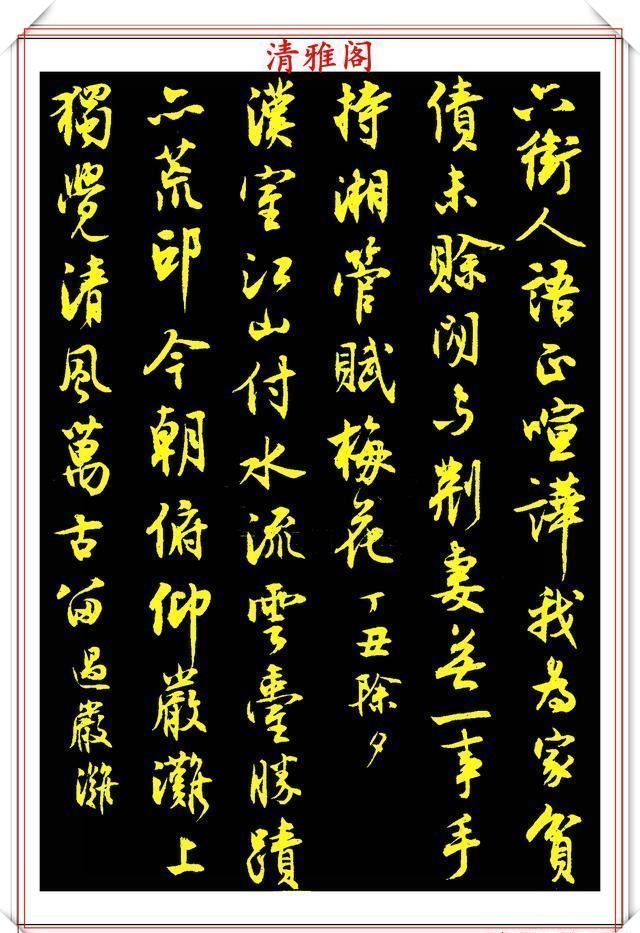 清雅阁
六街人語正喧譁我為家貧
債未賒閑与荆妻无一事手
持湘管賦梅花丁丑除夕
漢室江山付水流雲臺勝蹟
亦荒邱今朝俯仰嚴灘上
獨覺清風萬古留過嚴灘